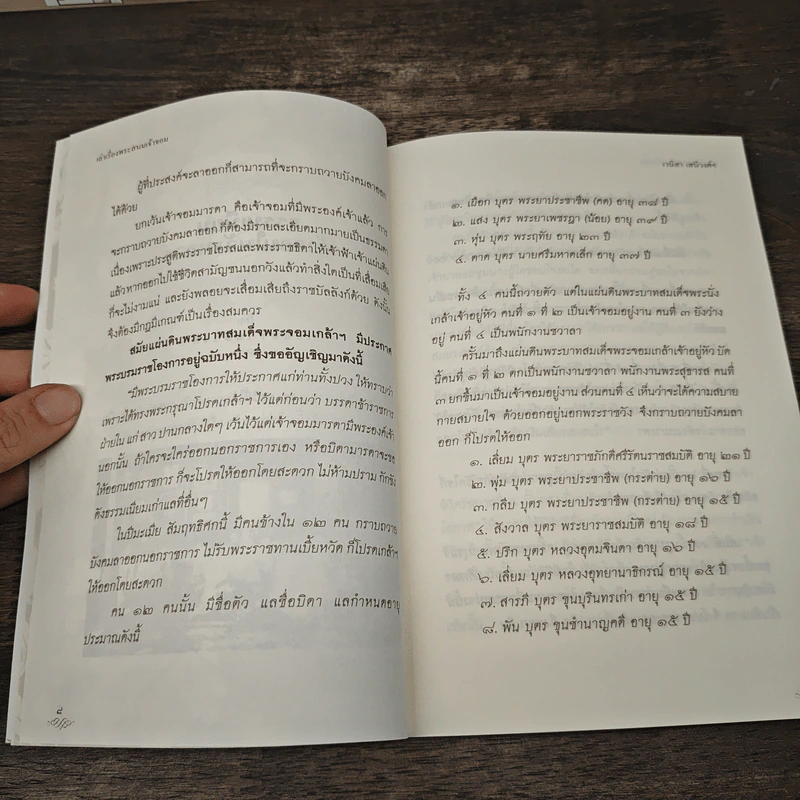 เล่าเรื่องพระสนมเจ้าจอม
ผู้ที่ประสงค์จะลาออกก็สามารถที่จะกราบถวายบังคมลาออก
ได้ด้วย
ยกเว้นเจ้าจอมมารดา คือเจ้าจอมที่มีพระองค์เจ้าแล้ว การ
จะกราบถวายบังคมลาออก ก็ต้องมีรายละเอียดมากมายเป็นธรรมดา
เนื่องเพราะประสูติพระราชโอรสและพระราชธิดาให้เจ้าฟ้าเจ้าแผ่นดิน
แล้วหากออกไปใช้ชีวิตสามัญชนนอกวังแล้วทำสิ่งใดเป็นที่เสื่อมเสีย
ก็จะไม่งามแน่ และยังพลอยจะเสื่อมเสียถึงราชบัลลังก์ด้วย ดังนั้น
จึงต้องมีกฎมีเกณฑ์เป็นเรื่องสมควร
สมัยแผ่นดินพระบาทสมเด็จพระจอมเกล้าฯ มีประกาศ
พระบรมราชโองการอยู่ฉบับหนึ่ง ซึ่งขออัญเชิญมาดังนี้
"มีพระบรมราชโองการให้ประกาศแก่ท่านทั้งปวง ให้ทราบว่า
เพราะได้ทรงพระกรุณาโปรดเกล้าฯ ไว้แต่ก่อนว่า บรรดาข้าราชการ
ฝ่ายใน แก่ สาว ปานกลางใดๆ เว้นไว้แต่เจ้าจอมมารดามีพระองค์เจ้า
นอกนั้น ถ้าใครจะใคร่ออกนอกราชการเอง หรือบิดามารดาจะขอ
ให้ออกนอกราชการ ก็จะโปรดให้ออกโดยสะดวก ไม่ห้ามปราม กักขัง
ดังธรรมเนียมเก่าแลที่อื่นๆ
ในปีมะเมีย สัมฤทธิศกนี้ มีคนข้างใน ๑๒ คน กราบถวาย
บังคมลาออกนอกราชการ ไม่รับพระราชทานเบี้ยหวัด ก็โปรดเกล้าฯ
ให้ออกโดยสะดวก
คน ๑๒ คนนั้น มีชื่อตัว แลชื่อบิดา แลกำหนดอายุ
ประมาณดังนี้
๘
๑. เยือก บุตร พระยาประชาชีพ (คด) อายุ ๓๗ ปี
๒. แสง บุตร พระยาเพชรฎา (น้อย) อายุ ๓๙ ปี
๓. หุ่น บุตร พระฤทัย อายุ ๒๓ ปี
๔. ตาด บุตร นายศรีมหาดเล็ก อายุ ๓๗ ปี
ทั้ง ๔ คนนี้ถวายตัว แต่ในแผ่นดินพระบาทสมเด็จพระนั่ง
เกล้าเจ้าอยู่หัว คนที่ ๑ ที่ ๒ เป็นเจ้าจอมอยู่งาน คนที่ ๓ ยังว่าง
อยู่ คนที่ ๔ เป็นพนักงานชวาลา
ครั้นมาถึงแผ่นดินพระบาทสมเด็จพระจอมเกล้าเจ้าอยู่หัว บัด
นี้คนที่ ๑ ที่ ๒ ตกเป็นพนักงานชวาลา พนักงานพระสุธารส คนที่
๓ ยกขึ้นมาเป็นเจ้าจอมอยู่งาน ส่วนคนที่ ๔ เห็นว่าจะได้ความสบาย
กายสบายใจ ด้วยออกอยู่นอกพระราชวัง จึงกราบถวายบังคมลา
ออก ก็โปรดให้ออก
๑. เลี่ยม บุตร พระยาราชภักดีศรีรัตนราชสมบัติ อายุ ๒๑ ปี
๒. พุ่ม บุตร พระยาประชาชีพ (กระต่าย) อายุ ๑๖ ปี
๓. กลีบ บุตร พระยาประชาชีพ (กระต่าย) อายุ ๑๕ ปี
๔. สังวาล บุตร พระยาราชสมบัติ อายุ ๑๘ ปี
๕. ปริก บุตร หลวงอุดมจินดา อายุ ๑๖ ปี
๖. เลี่ยม บุตร หลวงอุทยานาธิกรณ์ อายุ ๑๕ ปี
๗. สารภี บุตร ขุนบุรินทรเก่า อายุ ๑๕ ปี
๘. พัน บุตร ขุนชำนาญคดี อายุ ๑๕ ปี